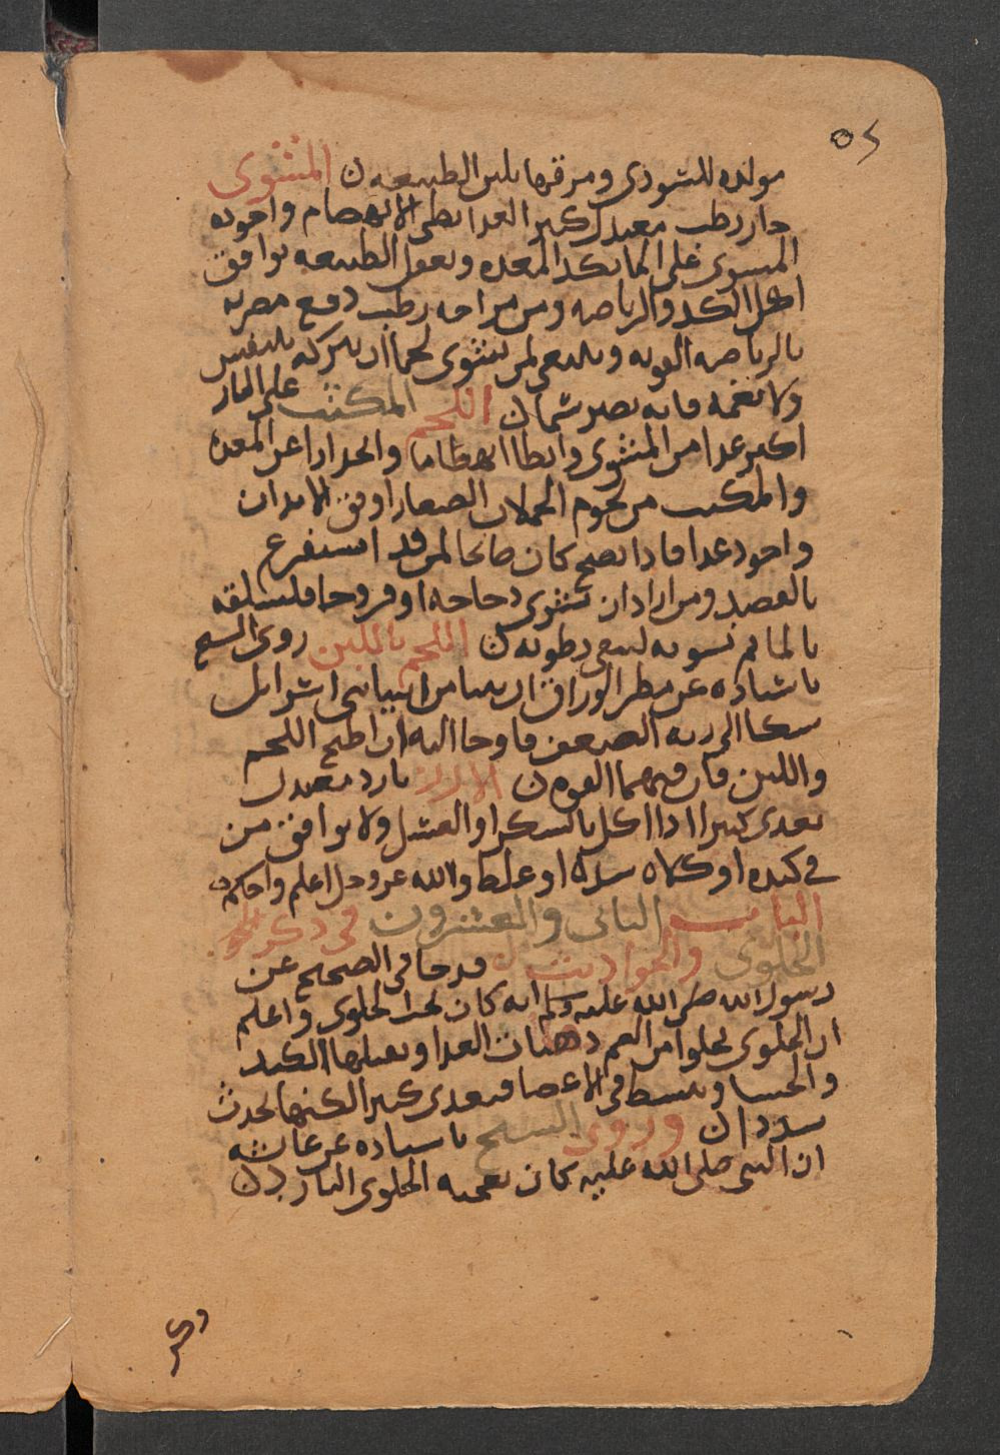 ٥٤
مولده للسوداوى ومرقها يلين الطبيعه ن المشوى
حار رطب معتدل كثير الغدا بطى الانهضام واجوده
المسوى على الماء يكد المعده ويعقل الطبيعه يوافق
اهل الكد والرياضه ومن مزاجه رطب دفع مضرته
بالرياضه القويه وينبغى لمن يشوى لحما ان يتركه يتنفس
ولا يغمه فانه يصير سما ن اللحم المكبب على النار
اكثر غدا من المشوى وابطا انهضاما وانحدارا عن المعده
والمكبب من لحوم الحملان الصغار اوفق الابدان
واجود غدا فاذا نضج كان صالحا لمن قد استفرغ
بالفصد ومن اراد ان يشوى دجاجه او فروجا فليسلقه
بالما ثم يشويه ليبقى رطوبته ن اللحم باللبن روى الشيخ
باسناده عن مطر الوراق ان نبيا من انبيا بنى اسرائل
شكا الى ربه الضعف فاوحا اليه ان اطبخ اللحم
واللبن فان فيهما القوه ن الارز بارد معتدل
يغدى كثيرا اذا اكل بالسكر او العسل ولا يوافق من
فى كبده او كلاه سدد او غلظ والله عز وجل اعلم واحكم
الباب الثانى والعشرون فى ذكر
الحلوى والجواذيب ن قد جا فى الصحيح عن
رسول الله صلى الله عليه وسلم انه كان يحب الحلوى واعلم
ان الحلوى يحلوا من الفم دهنيات الغدا ويقبلها الكبد
والحسا ويبسط فى الاعضا فيغدى كثيرا لكنها يحدث
سددا ن وروى الشيخ باسناده عن عائشه
ان النبى صلى الله عليه كان يعجبه الحلوى البارد ن